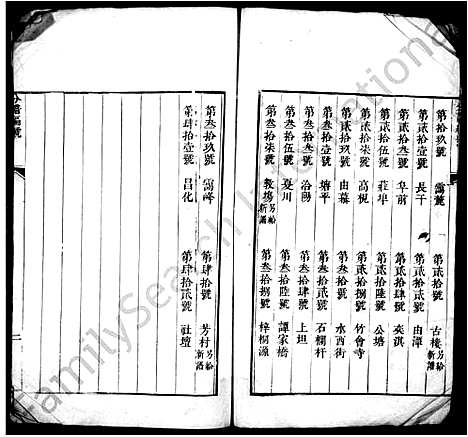 第拾玖號 靄麓
第貳拾號 古樓 另給新譜
第貳拾壹號 長干
第貳拾貳號 由潭
第貳拾叁號 阜前
第貳拾肆號 奕淇
第貳拾伍號 莊埠
第貳拾陸號 公塘
第貳拾柒號 高梘
第貳拾捌號 竹會寺
第貳拾玖號 由葉
第叁拾號 水西街
第叁拾壹號 塘平
第叁拾貳號 石欄杆
第叁拾叁號 洽陽
第叁拾肆號 上坦
第叁拾伍號 夏川
第叁拾陸號 譚家橋
第叁拾柒號 教場 另給新譜
第叁拾捌號 梓桐源
第叁拾玖號 靄峰
第肆拾號 芳村 另給新譜
第肆拾壹號 昌化
第肆拾貳號 社壇
二
FamilySearch International